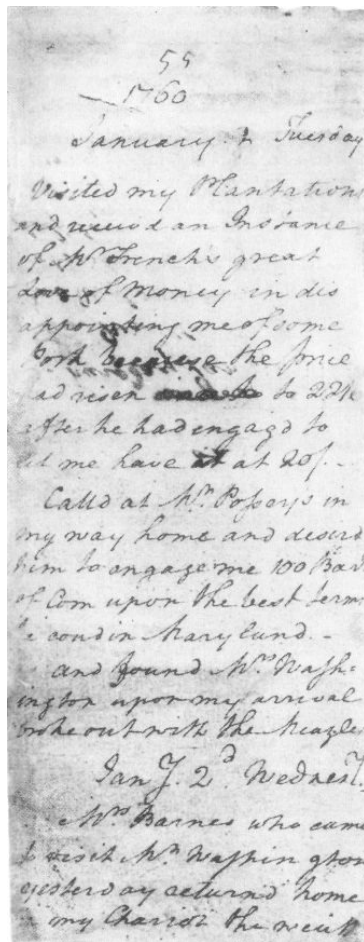 55
1760
January 1 Tuesday
Visited my Plantations
and receivd an Instance
of Mr. French's great
Love of Money in dis
appointing me of some
Pork because the price
had risen to 22/6
after he had engagd to
let me have it at 20/.
Calld at Mr. Possey's in
my way home and desird
him to engage me 100 Bar
of Corn upon the best terms
he coud in Maryland.
and found Mrs. Wash-
ington upon my arrival
broke out with the Meazles
Jany. 2d. Wednesd.
Mrs. Barnes who came
to visit Mrs. Washington
yesterday returnd home
my Charriot the weath